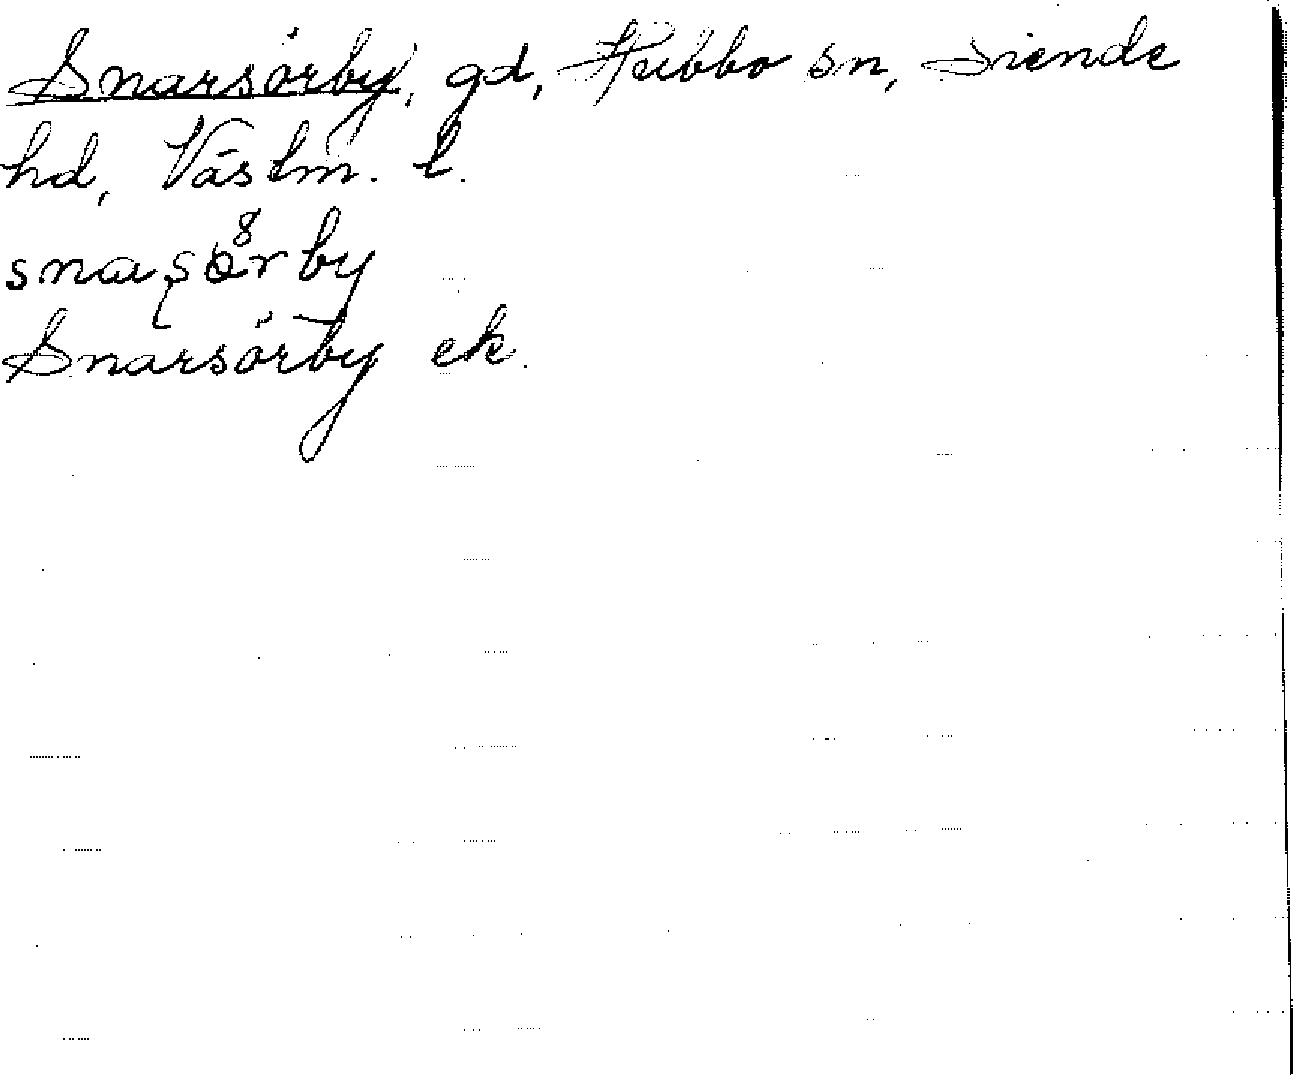 Snarsörby, gd, Hubbo sn, Siende
hd, Västm. l.
snaʂörby
Snarsörby ek.